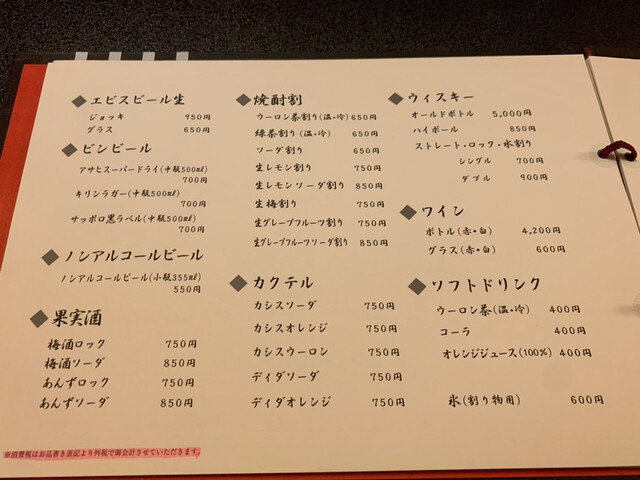 ◆エビスビール生
ジョッキ 950円
グラス 650円
◆ビンビール
アサヒスーパードライ(中瓶500㎖)
700円
キリンラガー(中瓶500㎖)
700円
サッポロ黒ラベル(中瓶500㎖)
700円
◆ノンアルコールビール
ノンアルコールビール(小瓶355㎖)
550円
◆果実酒
梅酒ロック 750円
梅酒ソーダ 850円
あんずロック 750円
あんずソーダ 850円
◆焼酎割
ウーロン茶割り(温・冷) 650円
緑茶割り(温・冷) 650円
ソーダ割り 650円
生レモン割り 750円
生レモンソーダ割り 850円
生梅割り 750円
生グレープフルーツ割り 750円
生グレープフルーツソーダ割り 850円
◆カクテル
カシスソーダ 750円
カシスオレンジ 750円
カシスウーロン 750円
ディダソーダ 750円
ディダオレンジ 750円
◆ウィスキー
オールドボトル 5,000円
ハイボール 850円
ストレート・ロック・水割り
シングル 700円
ダブル 900円
◆ワイン
ボトル(赤・白) 4,200円
グラス(赤・白) 600円
◆ソフトドリンク
ウーロン茶(温・冷) 400円
コーラ 400円
オレンジジュース(100%) 400円
氷(割り物用) 600円
※消費税はお品書き表記より外税で御会計させていただきます。